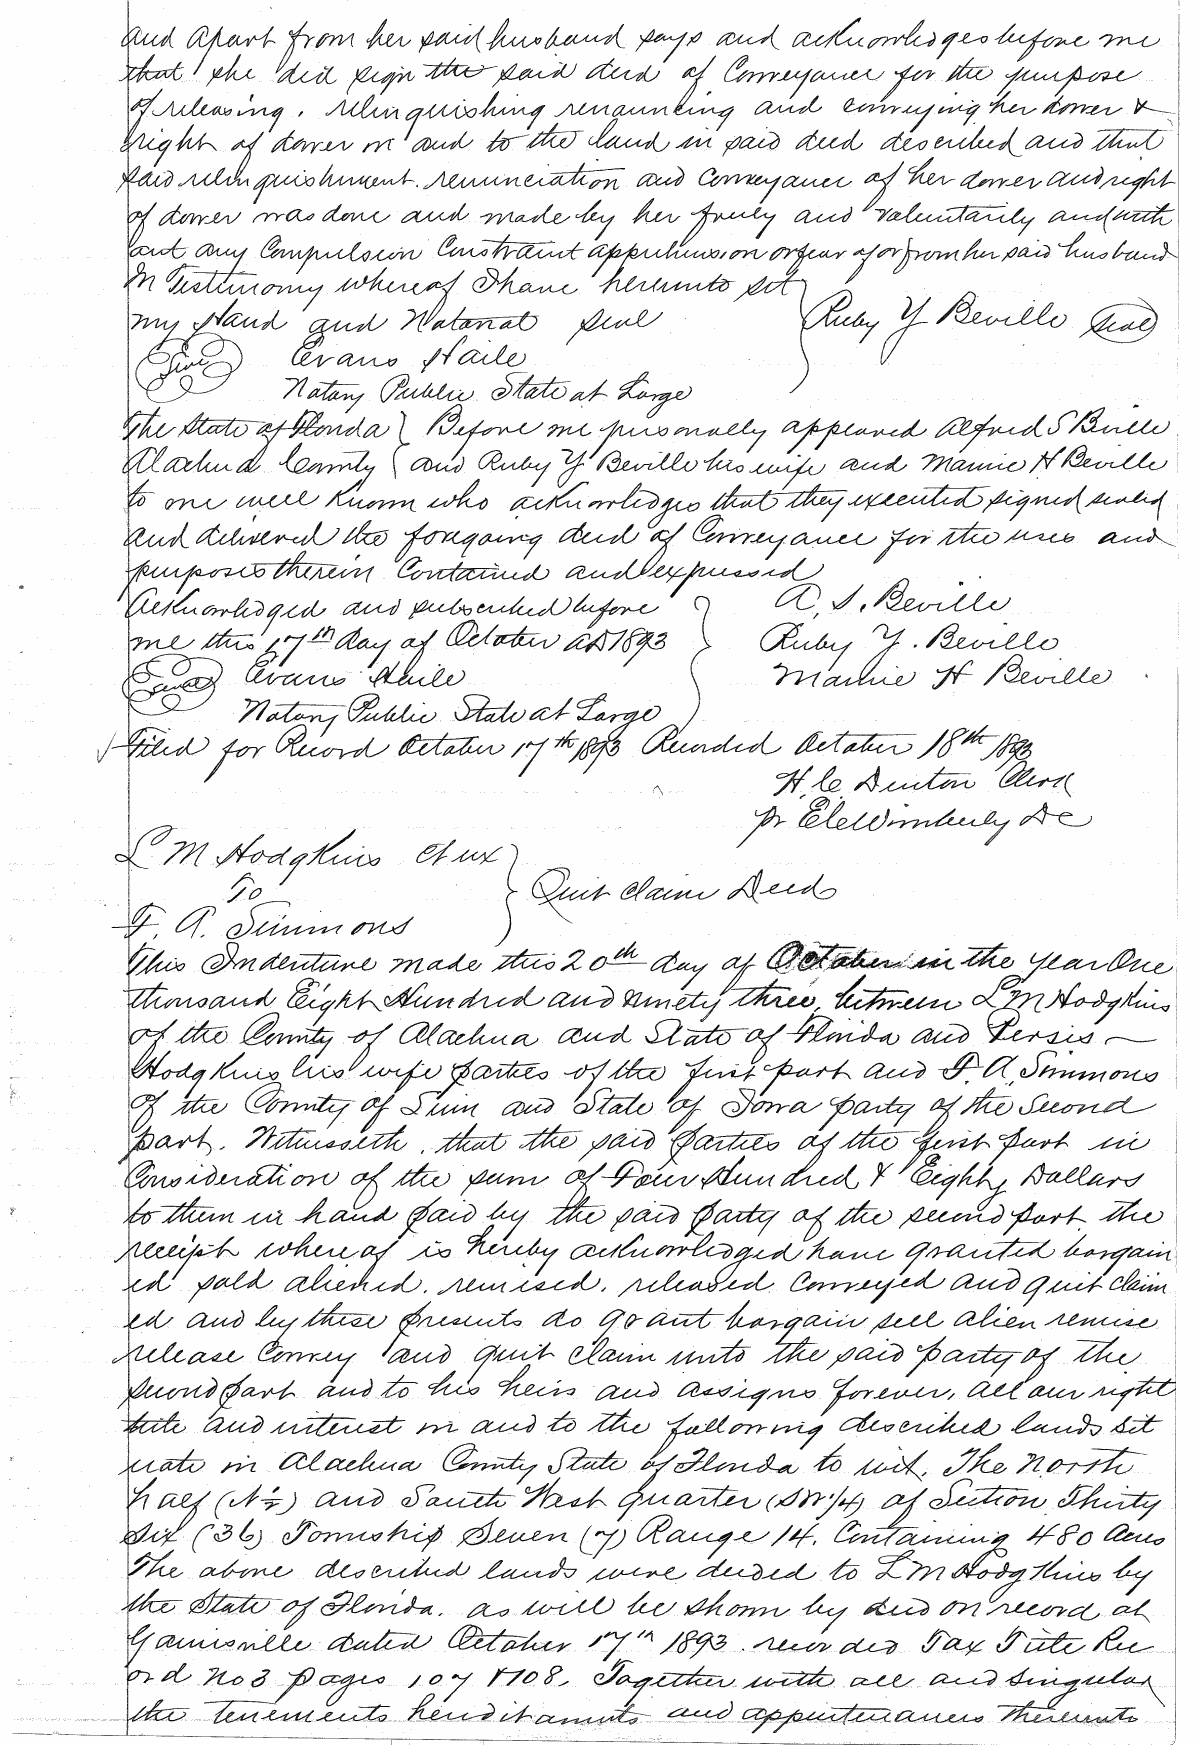 and apart from her said husband says and acknowledges before me
that she did sign the said deed of Conveyance for the purpose
of releasing, relinquishing renouncing and conveying her dower &
right of dower in and to the land in said deed described and that
said relinquishment. renunciation and Conveyance of her dower and right
of dower was done and made by her freely and voluntarily and with
out any Compulsion Constraint apprehension or fear of or from her said husband
In Testimony whereof I have hereunto set
my Hand and Notarial seal
Ruby Y Beville Seal
Seal Evans Haile
Notary Public State at Large
The State of Florida } Before me personally appeared Alfred S Beville
Alachua County } and Ruby Y Beville his wife and Mamie H Beville
to me well Known who acknowledges that they executed signed sealed
and delivered the foregoing deed of Conveyance for the uses and
purposes therein Contained and expressed
Acknowledged and subscribed before } A. S. Beville
me this 17th day of October AD 1893 } Ruby Y. Beville
Seal Evans Haile } Mamie H Beville
Notary Public State at Large
Filed for Record October 17th 1893 Recorded October 18th 1893
H. C. Denton Clerk
pr E C Wimberly DC
L M Hodgkins et ux
To } Quit Claim Deed
F. A. Simmons
This Indenture made this 20th day of October in the year One
thousand Eight Hundred and ninety three, between L M Hodgkins
of the County of Alachua and State of Florida and Persis
Hodgkins his wife parties of the first part and F. A. Simmons
of the County of Linn and State of Iowa party of the Second
part. Witnesseth, that the said parties of the first part in
Consideration of the sum of Four Hundred & Eighty Dollars
to them in hand paid by the said party of the second part the
receipt whereof is hereby acknowledged have granted bargain
ed sold aliened. remised. released. Conveyed and quit claim
ed and by these presents do grant bargain sell alien remise
release Convey and quit claim unto the said party of the
second part and to his heirs and assigns forever, all our right
title and interest in and to the following described lands sit
uate in Alachua County State of Florida to wit. The North
half (N½) and South West quarter (SW¼) of Section Thirty
Six (36) Township Seven (7) Range 14. Containing 480 Acres
The above described lands were deeded to L M Hodgkins by
the State of Florida. as will be shown by deed on record at
Gainisville dated October 17th 1893. recorded Tax Title Rec
ord No 3 pages 107 & 108. Together with all and Singular
the tenements hereditaments and appurtenances thereunto